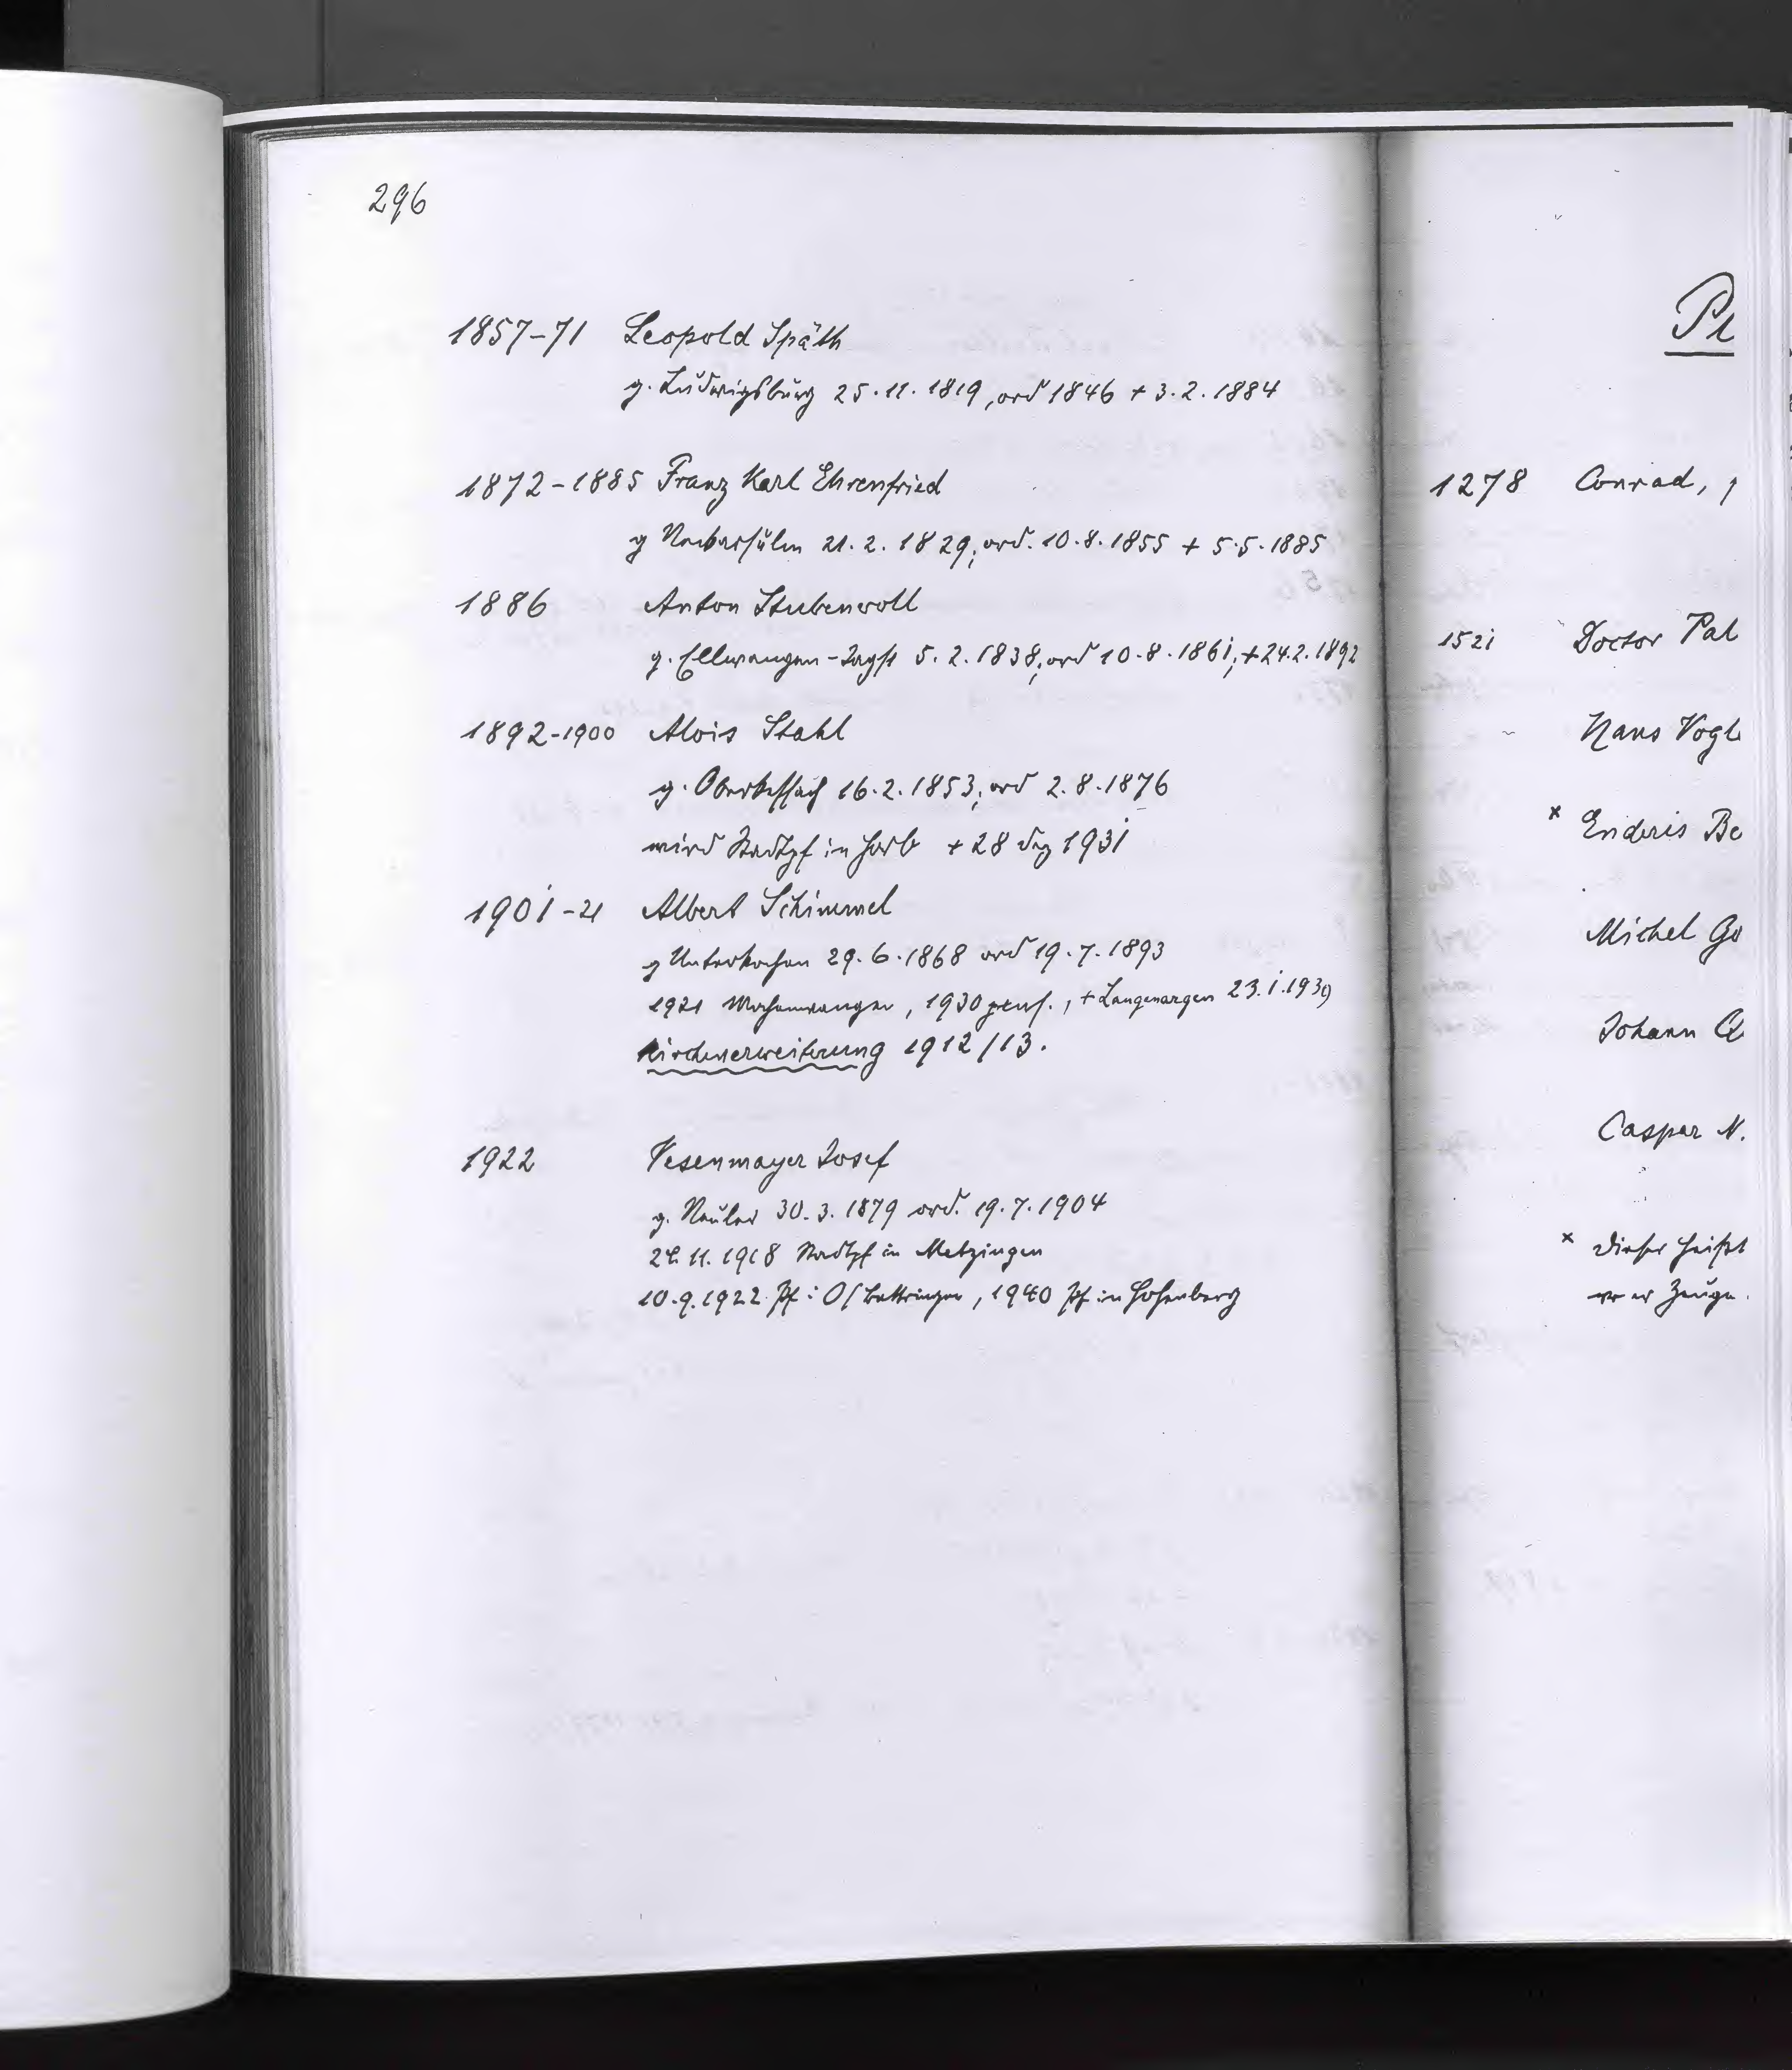 296
1857-71 Leopold Späth
g. Ludwigsburg 25.11.1819, ord 1846 + 3.2.1884
1872-1885 Franz Karl Ehrenfried
g Neckarsulm 21.2.1829, ord. 10.8.1855 + 5.5.1885
1886 Anton Stubenvoll
g. Ellwangen-Jagst 5.2.1838, ord 10.8.1861, + 24.2.1892
1892-1900 Alois Stahl
g. Oberkessach 16.2.1853, ord 2.8.1876
wird Stadtpf in Horb + 28 Dez 1931
1901-21 Albert Schimmel
g Unterkochen 29.6.1868 ord 19.7.1893
1921 Mochenwangen, 1930 pens., + Langenargen 23.1.1939
Kirchenerweiterung 1912/13.
1922 Vesenmayer Josef
g. Neuler 30.3.1879 ord. 19.7.1904
11.1918 Stadtpf in Metzingen
10.9.1922 Pf i O/Bettringen, 1940 Pf in Hohenberg
1278 Conrad,
1521 Doctor Pal
Hans Vogl
x Enderis Be
Michel Go
Johann
Caspar N.
x Dieser heißt
wo er Zeuge